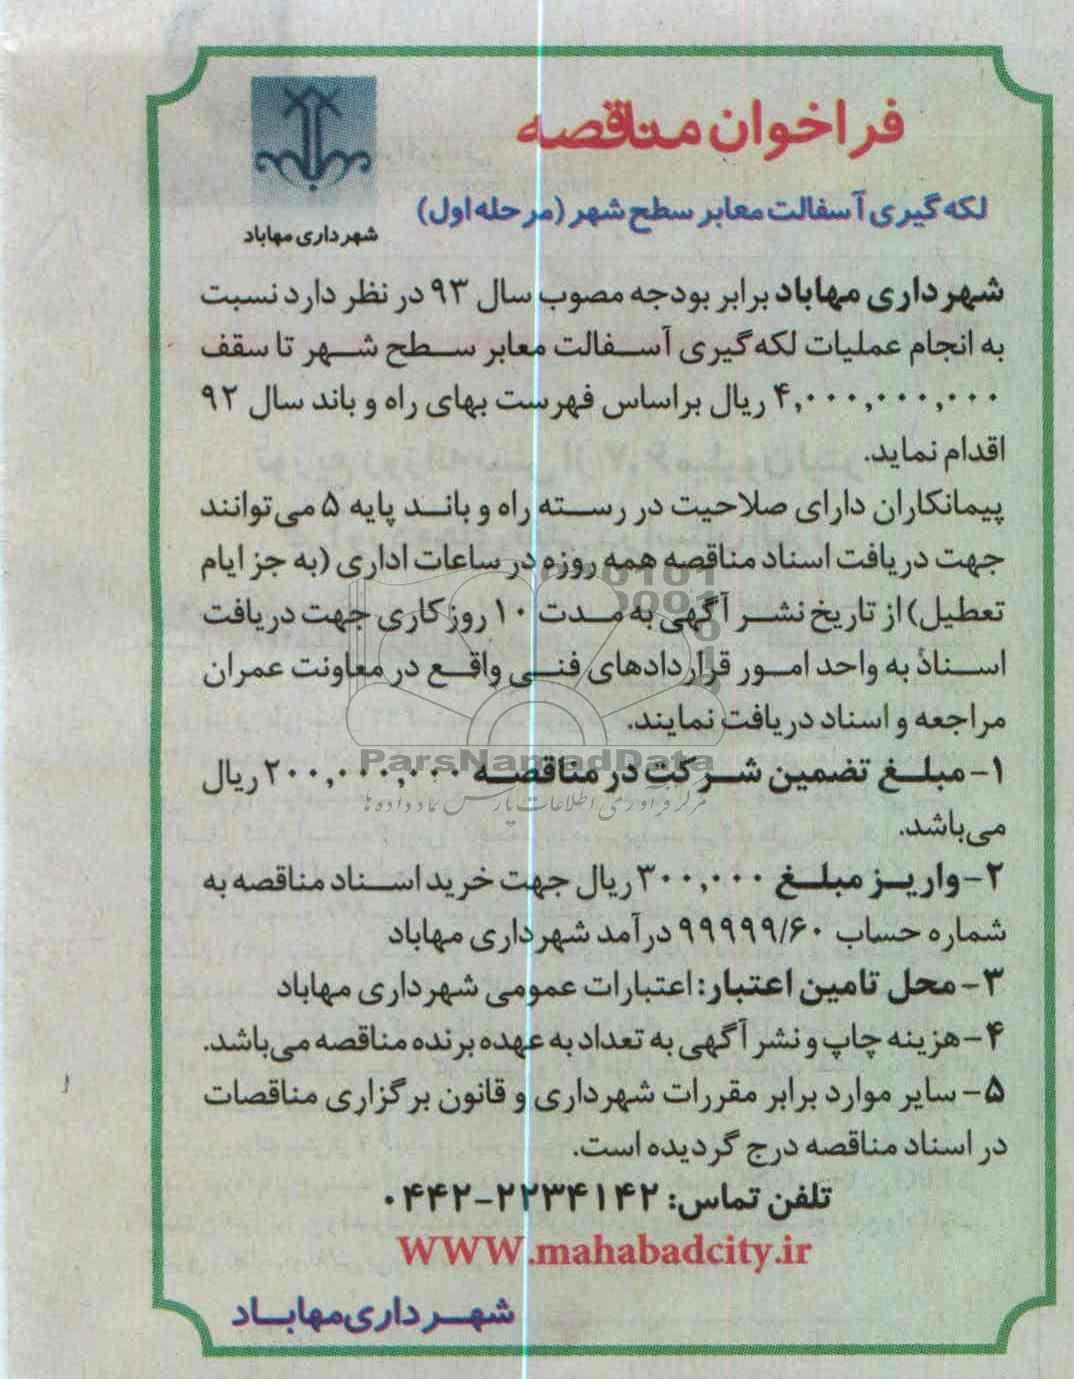 فراخوان مناقصه
لکه گیری آسفالت معابر سطح شهر (مرحله اول)
شهرداری مهاباد
شهرداری مهاباد برابر بودجه مصوب سال ۹۳ در نظر دارد نسبت
به انجام عملیات لکه گیری آسفالت معابر سطح شهر تا سقف
۴,۰۰۰,۰۰۰,۰۰۰ ریال براساس فهرست بهای راه و باند سال ۹۲
اقدام نماید.
پیمانکاران دارای صلاحیت در رسته راه و باند پایه ۵ می توانند
جهت دریافت اسناد مناقصه همه روزه در ساعات اداری (به جز ایام
تعطیل) از تاریخ نشر آگهی به مدت ۱۰ روز کاری جهت دریافت
اسناد به واحد امور قراردادهای فنی واقع در معاونت عمران
مراجعه و اسناد دریافت نمایند.
ParsNamadData
۱- مبلغ تضمین شرکت در مناقصه ۲۰۰,۰۰۰,۰۰۰ ریال
مرکز فرآوری اطلاعات پارس نماد داده ها
می باشد.
۲- واریز مبلغ ۳۰۰,۰۰۰ ریال جهت خرید اسناد مناقصه به
شماره حساب ۹۹۹۹۹/۶۰ درآمد شهرداری مهاباد
۳- محل تامین اعتبار: اعتبارات عمومی شهرداری مهاباد
۴- هزینه چاپ و نشر آگهی به تعداد به عهده برنده مناقصه می باشد.
۵- سایر موارد برابر مقررات شهرداری و قانون برگزاری مناقصات
در اسناد مناقصه درج گردیده است.
تلفن تماس: ۲۲۳۴۱۴۲-۰۴۴۲
WWW.mahabadcity.ir
شهرداری مهاباد